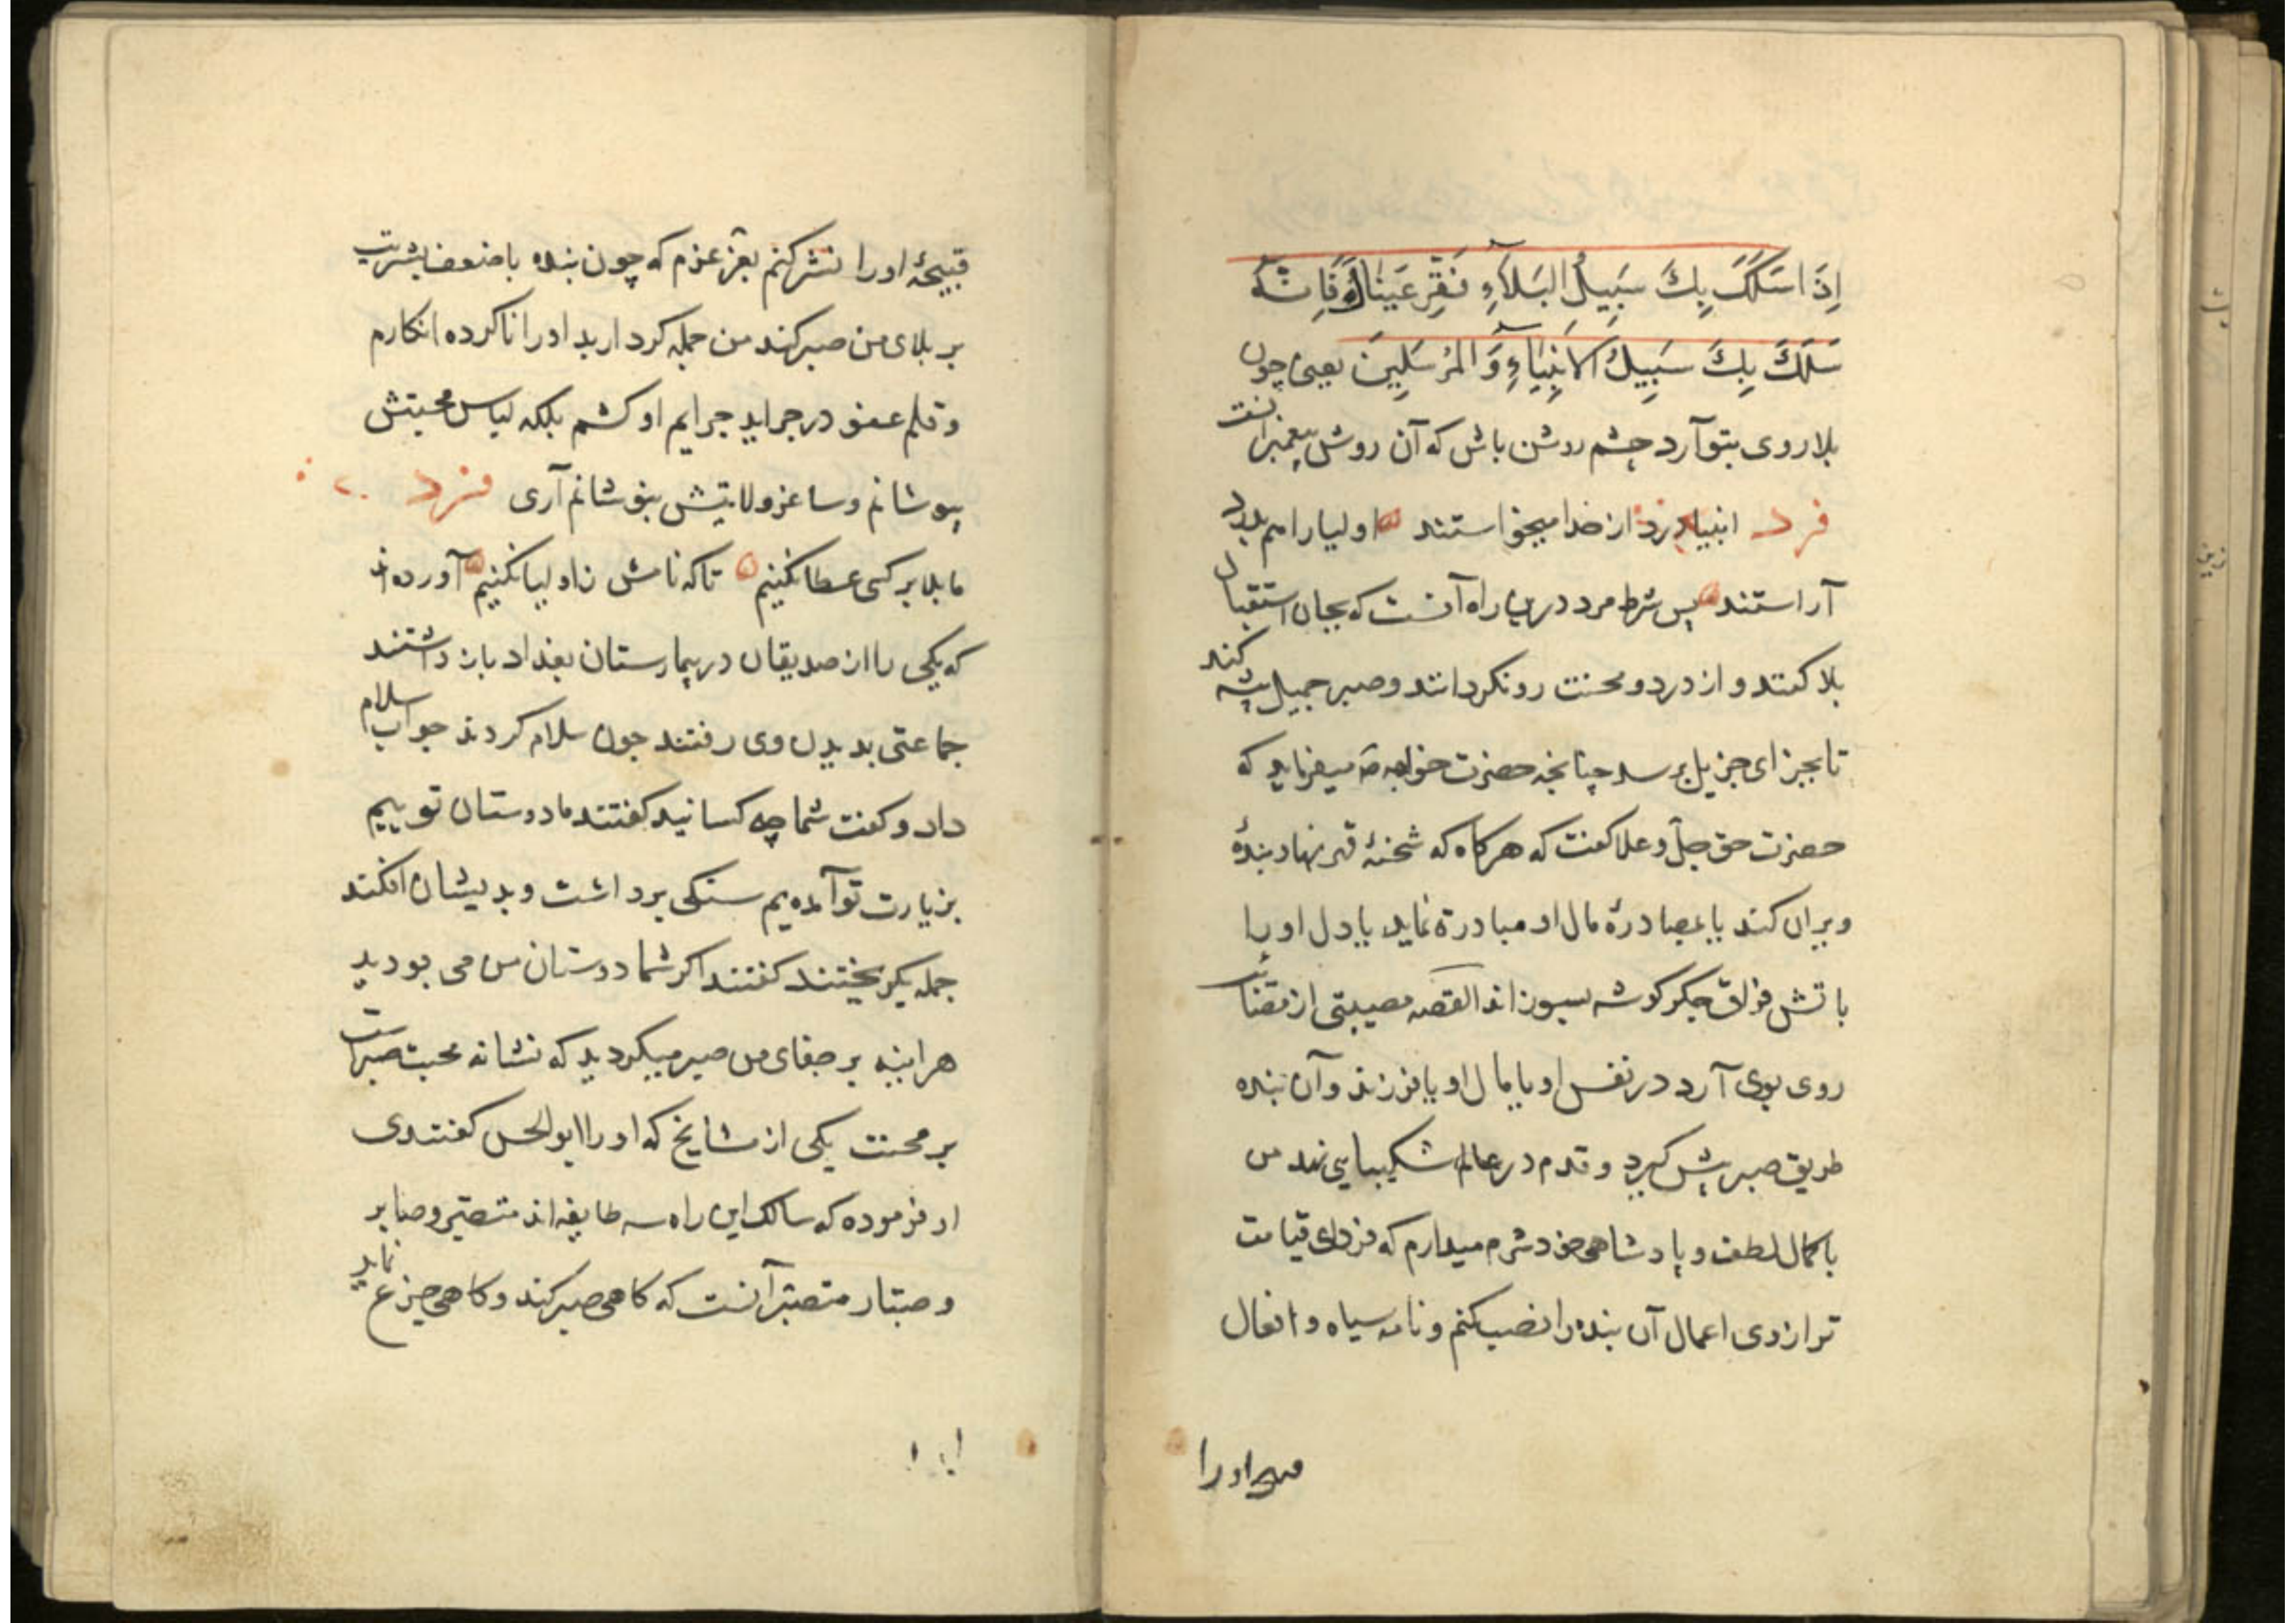 اِذَا سَلَكَ بِكَ سَبِيلُ البَلَآءِ فَقِرَّ عَيناً فَاِنَّهُ
سَلَكَ بِكَ سَبِيلُ الاَنبِيَآءِ وَ المُرسَلِينَ یعنی چون
بلا روی بتو آرد چشم روشن باش که آن روش پیغمبرانست
فرد انبیا درد از خدا میخواستند اولیا را هم بدرد
آراستند پس شرط مرد درین راه آنست که بجان استقبال
بلا کنند و از درد و محنت رو نکردانند و صبر جمیل پیشه کنند
تا بجزای جزیل برسد چنانچه حضرت خواجه صم میفرماید که
حضرت حق جلّ و علا کفت که هرکاه که شحنهٔ قهر نهاد بندهٔ
ویران کند یا بمصادرهٔ مال او مبادرة نماید یا دل او را
باتش فراق جکرکوشه بسوزاند القصه مصیبتی از
روی بوی آرد در نفس او یا بمال او یا فرزند و آن بنده
طریق صبر پیش کیرد و قدم در عالم شکیبایی نهد من
با کمال لطف و پادشاهی خود شرم میدارم که فردای قیامت
ترازوی اعمال آن بنده را نصب کنم و نامه سیاه و افعال
قبیحهٔ او را
قبیحهٔ او را نشر کنم بعز عزم که چون بنده با ضعف بشریت
بر بلای من صبر کند من جمله کردار بد او را ناکرده انکارم
و قلم عفو در جراید جرایم او کشم بلکه لباس محبتش
بپوشانم و ساغر ولایتش بنوشانم آری فرد
ما بلا بر کسی عطا نکنیم تا که نامش ز اولیا نکنیم آورده اند
که یکی را از صدیقان در بیمارستان بغداد باز داشتند
جماعتی بدیدن وی رفتند چون سلام کردند جواب سلام
داد و کفت شما چه کسانید کفتند ما دوستان توییم
بزیارت تو آمده‌یم سنکی برداشت و بدیشان افکند
جمله بکریختند کفتند اکر شما دوستان من می بودید
هراینه بر جفای من صبر میکردید که نشانه محبت صبر است
بر محنت یکی از مشایخ که او را ابوالحسن کفتندی
او فرموده که سالک این راه سه طایفه اند متصبّر و صابر
و صبّار متصبّر آنست که کاهی صبر کند و کاهی جزع نماید